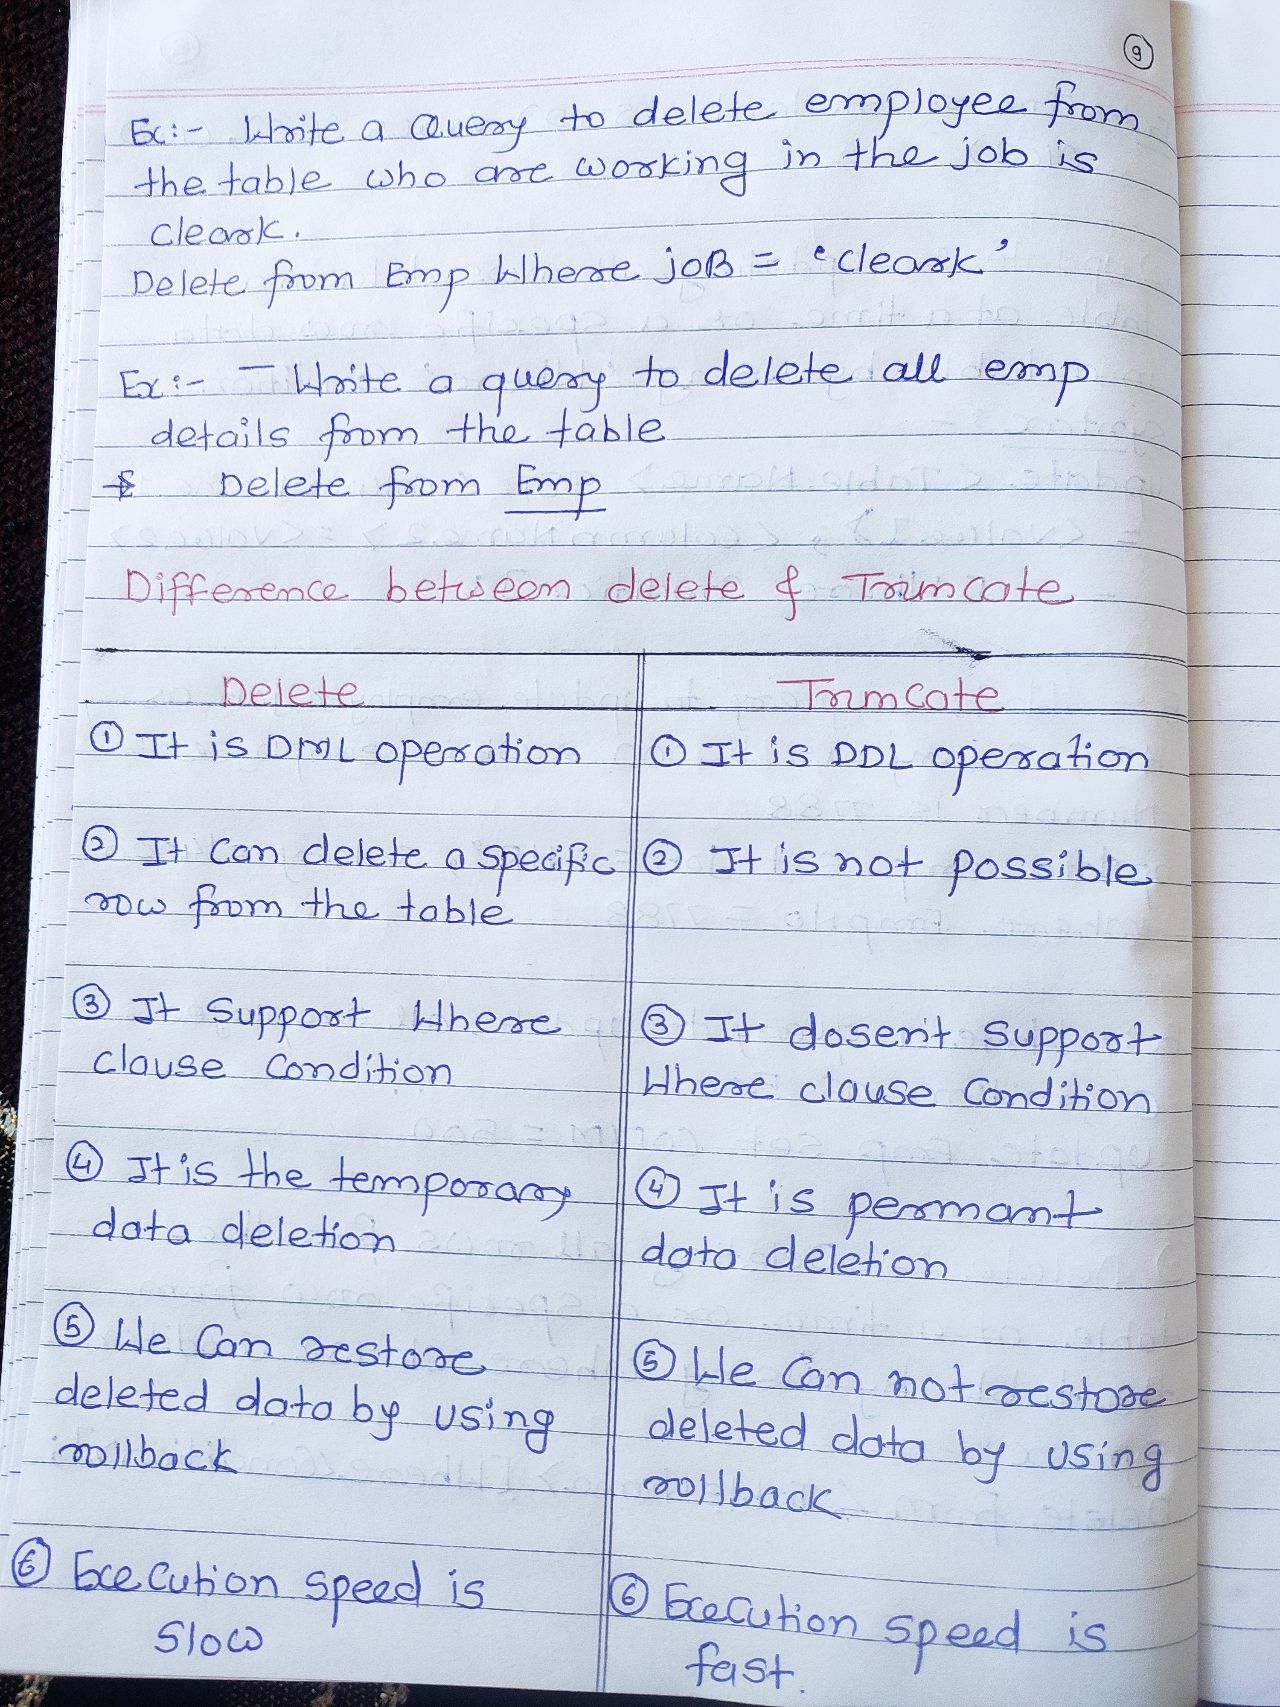 9
Ex:- Write a Query to delete employee from
the table who are working in the job is
cleark.
Delete from Emp Where joB = 'cleark'
Ex:- - Write a query to delete all emp
details from the table
Delete from Emp
Difference between delete & Trumcate
Delete
Trumcate
① It is DML operation
① It is DDL operation
② It can delete a specific
row from the table
② It is not possible
③ It Support Where
clause condition
③ It dosen't support
Where clause Condition
④ It is the temporary
data deletion
④ It is permant
data deletion
⑤ We Can restore
deleted data by using
rollback
⑤ We Can not restore
deleted data by using
rollback
⑥ Execution speed is
Slow
⑥ Execution speed is
fast.